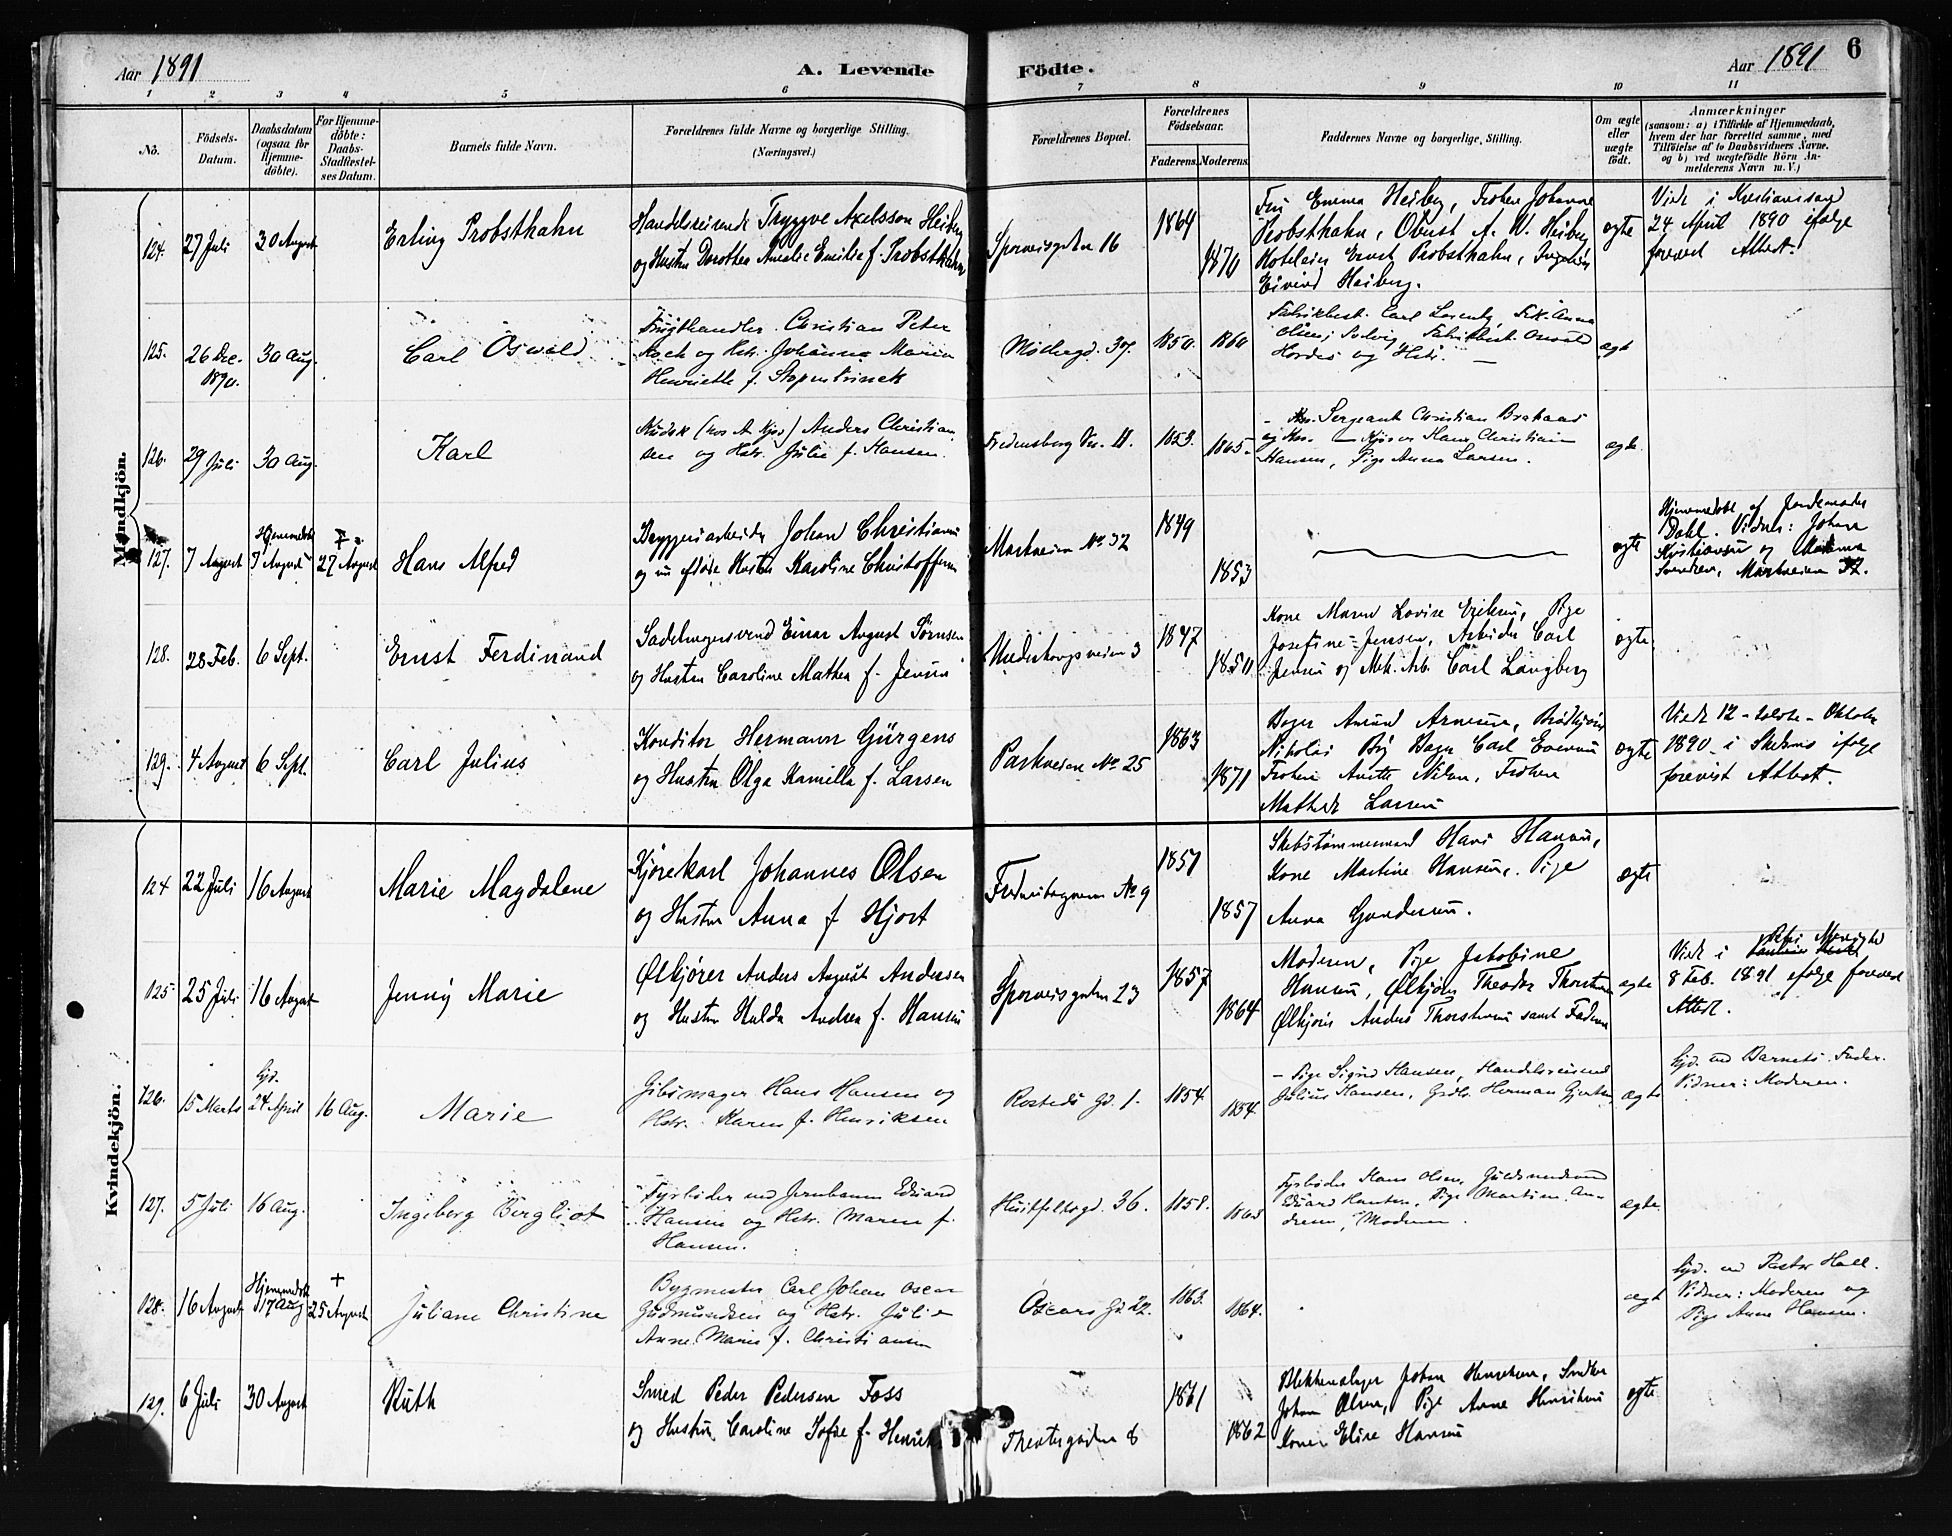 Aar 1891
A. Levende Födte.
Aar 1891
6
1 2 3 4 5 6 7 8 9 10 11
No.
Födsels-Datum.
Daabsdatum (ogsaa for Hjemme-döbte).
For Hjemme-döbte: Daabs-Stadfæstel-ses Datum.
Barnets fulde Navn.
Forældrenes fulde Navne og borgerlige Stilling.
(Næringsvei.)
Forældrenes Bopæl.
Forældrenes Födselsaar.
Faderens. Moderens.
Faddernes Navne og borgerlige, Stilling.
Om ægte eller uægte födt.
Anmærkninger
(saasom: a) i Tilfælde af Hjemmedaab,
hvem der har forrettet samme, med
Tilföielse af to Daabsvidners Navne.
og b) ved uægtefödte Börn An-
melderens Navn m. V.)
Mandkjön.
124. 27 Juli 30 August Erling Probsthahn
Handelsreisende Tryggve Axelsson Heiberg
og Hustru Dorothea Amalie Emilie f. Probsthahn
Sporveisgaden 16 1864 1870
Fru Emma Heiberg, Frøken Johanne
Probsthahn, Oberst A. W. Heiberg
Hoteleier Ernst Probsthahn, Ingeniør
Eivind Heiberg.
ægte
Viede i Kristianssand
24 April 1890 ifølge
forevist Attest.
125. 26 Dec. 1890. 30 Aug. Carl Oswald
Frugthandler Christian Peter
Koch og Hstr. Johanne Marie
Henriette f.
Møllergd. 37. 1850. 1860
Fabrikbest. Carl Lorentz Frk. Anna
Olsen,
og Hstr.
ægt
126. 29 Juli 30 Aug. Karl
Kudsk Anders Christian
sen og Hstr. Julie f. Hansen.
Fredensborg Vn. 11. 1853. 1865.
Sergeant Christian
Hans Christian
Hansen, Pige Anna Larsen.
ægte
127. 7 August Hjemmedøbt 7 August 27 August Hans Alfred
Bryggeriarbeider Johan Christiansen
og Hustru Karoline Christoffersen
Markveien No 32 1849 1853
ægte
Hjemmedøbt af Jordemoder
Dahl. Vidner: Johan
Kristiansen og
Svendsen, Markveien 32.
128. 28 Feb. 6 Sept. Ernst Ferdinand
Sadelmagersvend Einar August Sørensen
og Hustru Caroline Mathea f. Jensen
Underhaugsveien 3 1847 1850
Kone Maren Lovise Eriksen, Pige
Josefine Jensen, Arbeider Carl
Jensen og Mek. Arb. Carl Langberg
ægte
129. 4 August 6 Sept. Carl Julius
Konditor Hermann Gürgens
og Hustru Olga Kamilla f. Larsen
Parkveien No 25 1863 1871
Bager Amund Arnesen, Brødkjører
Nikolai Bager Carl Evensen
Frøken Anette Nilsen, Frøken
Mathilde Larsen
ægte
Viede 12 - tolvte - Oktober
1890 i ifølge
forevist Attest.
Kvindekjön.
124 22 Juli 16 August Marie Magdalene
Kjørekarl Johannes Olsen
og Hustru Anna f Hjort
No 9 1857 1857
Skibstømmermand Hans Hansen,
Kone Martine Hansen, Pige
Anna Gundersen.
ægte
125 25 Juli 16 August Jenny Marie
Ølkjører Anders August Andersen
og Hustru Hulda Andrea f. Hansen
Sporveisgaden 23 1857 1864
Moderen, Pige Jakobine
Hansen, Ølkjører Theodor Thorstensen
Ølkjører Anders Thorstensen samt Faderen
ægte
Viede i Petri Menighed
8 Feb. 1891 ifølge forevist
Attest.
126. 15 Marts hjd. 24 April 16 Aug. Marie
Gibsmager Hans Hansen og
Hstr. Karen f. Henriksen
Rosteds Gd. 1. 1854. 1854.
Pige Sigrid Hansen, Handelsreisende
Julius Hansen, Grdb. Herman Gjertsen
ægte
hjd. ved Barnets Fader.
Vidner: Moderen.
127. 5 Juli 16 Aug. Ingeborg Bergliot
Fyrbøder ved Jernbanen Edvard
Hansen og Hstr. Maren f.
Hansen.
Huitfeldtsgd. 36. 1858. 1863
Fyrbøder Hans Olsen, Guldsmedsvend
Edvard Hansen, Pige Martine An-
dresen, Moderen.
ægte
128. 16 August Hjemmedøbt 17 Aug + 25 August Juliane Christine
Bygmester Carl Johan Oscar
Gudmundsen og Hstr. Julie
Anne Marie f. Christiansen
Oscars Gd. 22. 1863. 1864.
ægt
hjd. ved Pastor Hall.
Vidner: Moderen og
Pige Anne Hansen.
129. 6 Juli 30 August Ruth
Smed Peder Pedersen Foss
og Hustru Caroline Sofie f. Henriks
Theatergaden 8 1861 1862
Blikkenslager Johan Henriksen, Snedker
Johan Olsen, Pige Anne Henriksen
Kone Elise Hansen
ægte